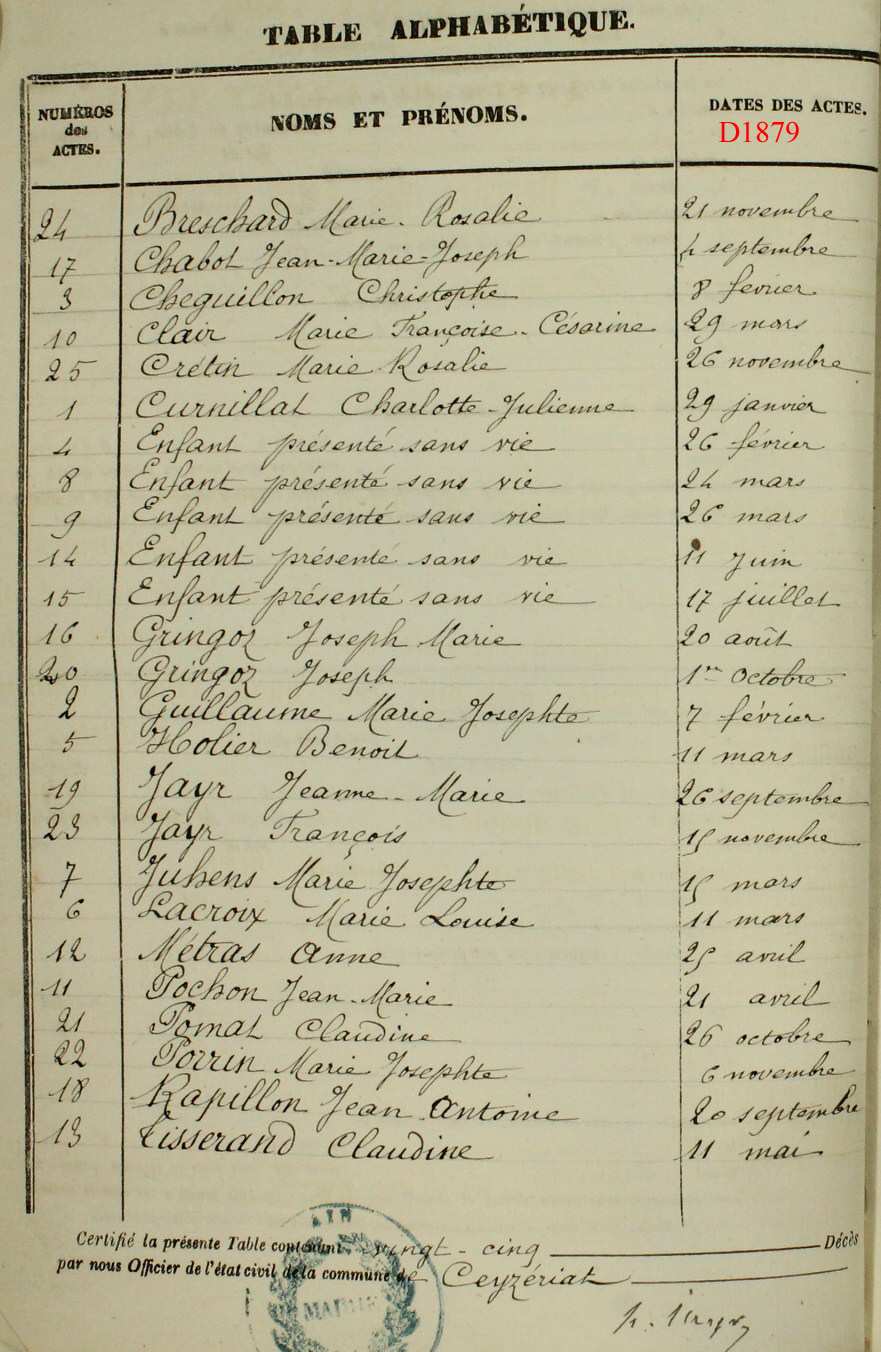 TABLE ALPHABÉTIQUE.
NUMÉROS des ACTES. NOMS ET PRÉNOMS. DATES DES ACTES.
D1879
24 Breschard Marie-Rosalie 21 novembre
17 Chabot Jean-Marie-Joseph 4 septembre
3 Cheguillon Christophe 8 fevrier
10 Clair Marie Françoise-Césarine 29 mars
25 Crétin Marie Rosalie 26 novembre
1 Curnillat Charlotte-Julienne 29 janvier
4 Enfant présenté sans vie 26 février
8 Enfant présenté sans vie 24 mars
9 Enfant présenté sans vie 26 mars
14 Enfant présenté sans vie 11 Juin
15 Enfant présenté sans vie 17 juillet
16 Gringoz Joseph Marie 20 août
20 Gringoz Joseph 1er octobre
2 Guillaume Marie Josephte 7 février
5 Holier Benoit 11 mars
19 Jayr Jeanne-Marie 26 septembre
23 Jayr François 15 novembre
7 Juhens Marie Josephte 15 mars
6 Lacroix Marie Louise 11 mars
12 Métras Anne 25 avril
11 Pochon Jean-Marie 21 avril
21 Pomat Claudine 26 octobre
22 Porrin Marie Josephte 6 novembre
18 Rapillon Jean Antoine 20 septembre
13 Tisserand Claudine 11 mai
Certifié la présente Table contenant vingt-cinq Décès
par nous Officier de l'état civil de la commune de Ceyzériat
AIN
MAIRIE